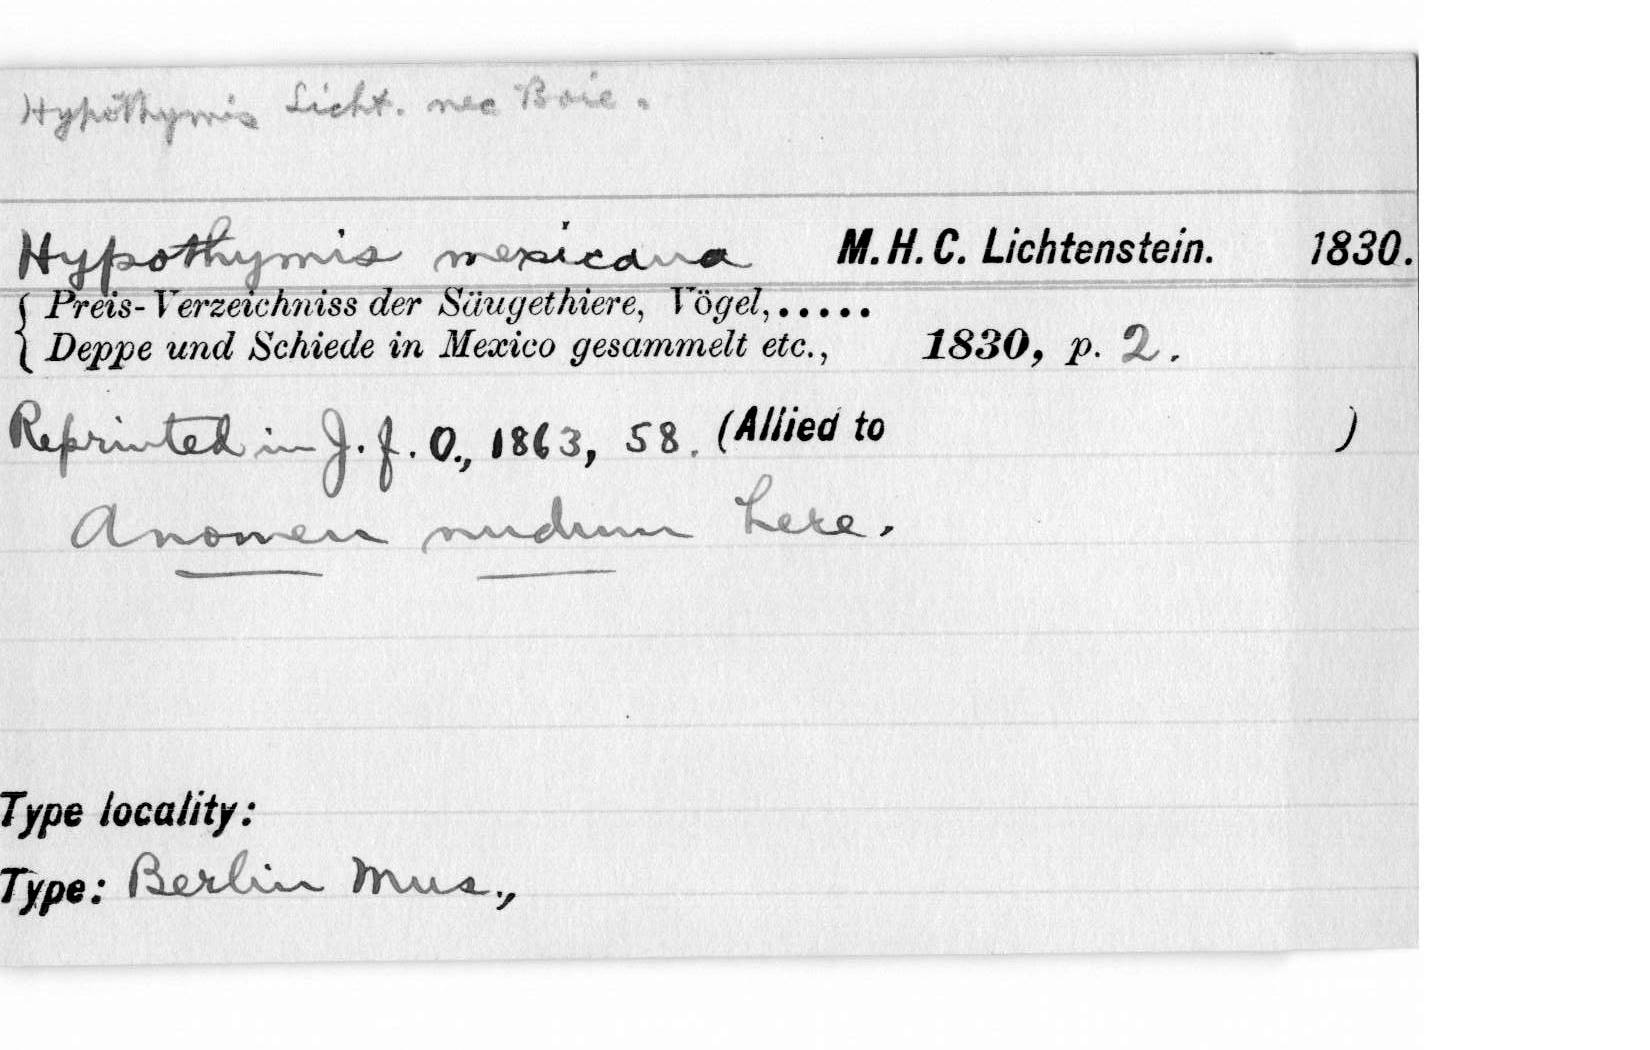 Hypothymis Licht. nec Boie.
Hypothymis mexicana M. H. C. Lichtenstein. 1830.
{ Preis-Verzeichniss der Säugethiere, Vögel,.....
{ Deppe und Schiede in Mexico gesammelt etc., 1830, p. 2.
Reprinted in J. f. O., 1863, 58. (Allied to )
A nomen nudum here.
Type locality:
Type: Berlin Mus.,